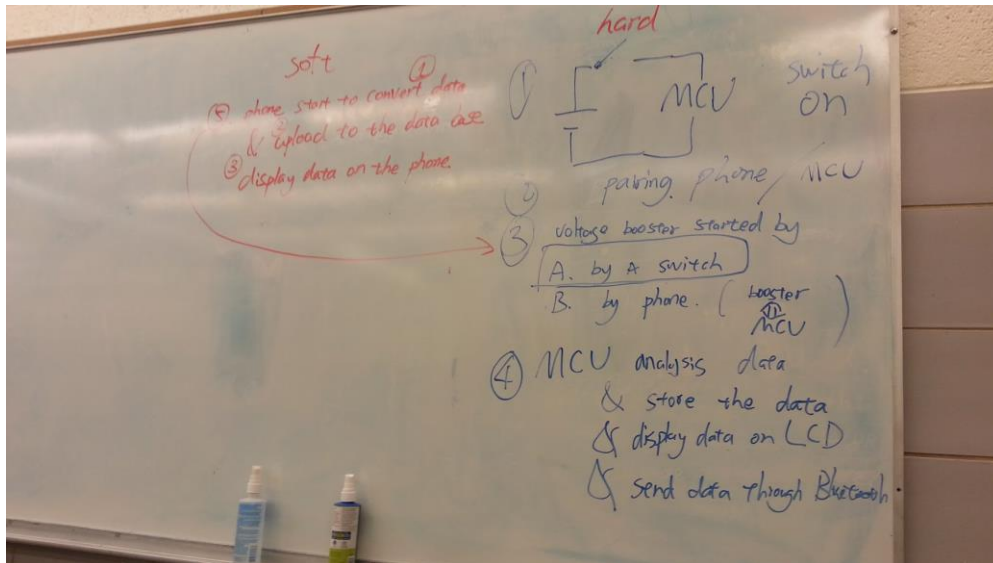 soft
① phone start to convert data
& ② upload to the data base
③ display data on the phone.
hard
①
MCU
switch
on
② pairing phone / MCU
③ voltage booster started by
A. by A switch
B. by phone. ( booster
MCU )
④ MCU analysis data
& store the data
& display data on LCD
& send data through Bluetooth